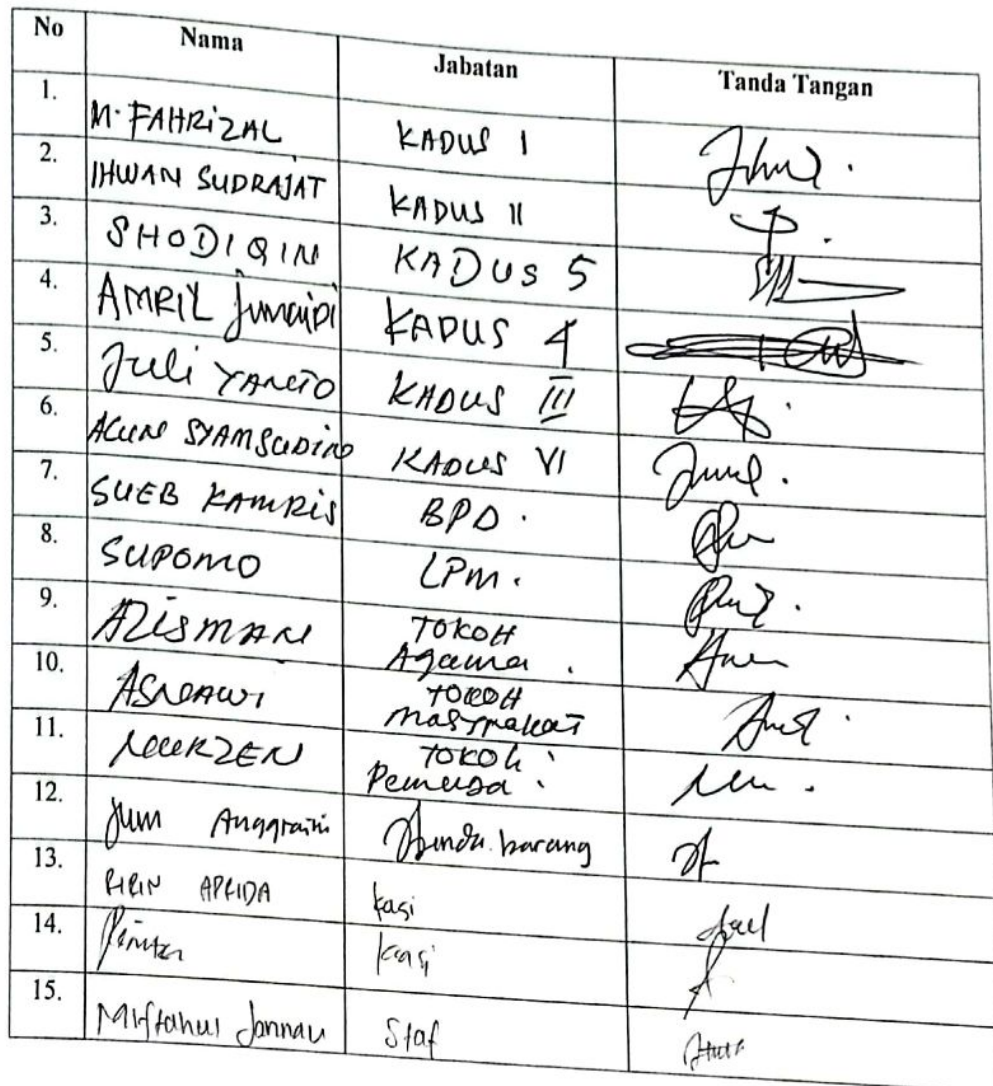 No Nama Jabatan Tanda Tangan
1. M. FAHRIZAL KADUS I
2. IHWAN SUDRAJAT KADUS II
3. SHODIQIN KADUS 5
4. AMRIL Junaidi KADUS 4
5. Juli YANTO KADUS III
6. AKUN SYAMSUDIN KADUS VI
7. SUEB KAMRIS BPD.
8. SUPOMO LPM.
9. AZISMAN TOKOH
Agama.
10. ASNAWI TOKOH
Masyarakat
11. NURZEN TOKOH
Pemuda.
12. Anggraini barang
13. RIRIN APRIDA kasi
14. kasi
15. Miftahul Jannah Staf